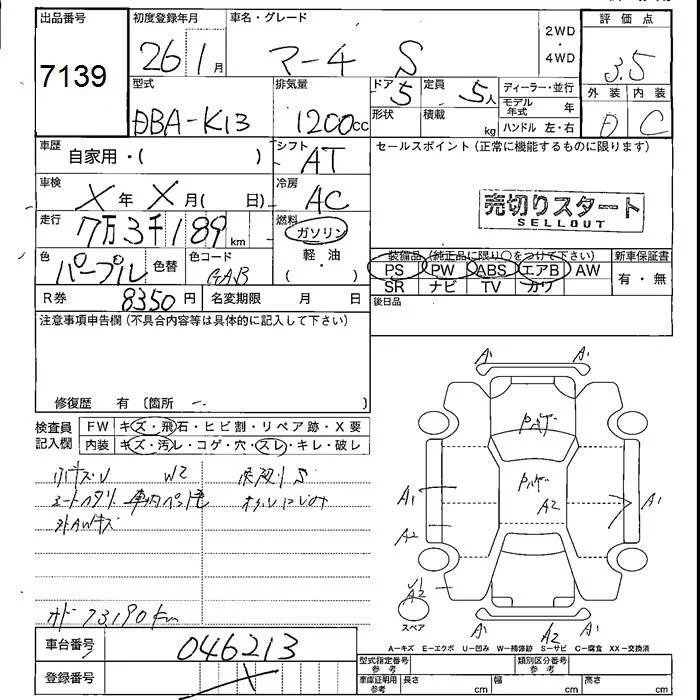 出品番号
7139
初度登録年月
26 1月
車名・グレード
マーチ S
2WD
・
4WD
評価点
3.5
外装 内装
D C
型式
DBA-K13
排気量
1200cc
ドア
5
定員
5人
形状
積載
kg
ディーラー・並行
モデル年式 年
ハンドル 左・右
車歴
自家用・( )
シフト
AT
セールスポイント(正常に機能するものに限ります)
売切りスタート
SELLOUT
車検
X年 X月( 日)
冷房
AC
走行
7万3千189km
燃料
ガソリン
軽・油
( )
色
パープル
色替
色コード
GAB
装備品(純正品に限り○をつけて下さい)
PS PW ABS エアB AW
SR ナビ TV カワ
新車保証書
有・無
R券 8350円 名変期限 月 日
後日品
注意事項申告欄(不具合内容等は具体的に記入して下さい)
修復歴 有 〔箇所
検査員記入欄
FW キズ・飛石・ヒビ割・リペア跡・X要
内装 キズ・汚レ・コゲ・穴・スレ・キレ・破レ
W2
S
シートヘタリ
外AWキズ
オド 73190km
A1 A1
A1 A1
A2
A2
A2
A2
A1
スペア
A-キズ E-エクボ U-凹み W-補修跡 S-サビ C-腐食 XX-交換済
車台番号
046213
登録番号
型式指定番号 参考
類別区分番号 参考
車庫証明用 参考
長さ cm 幅 cm 高さ cm